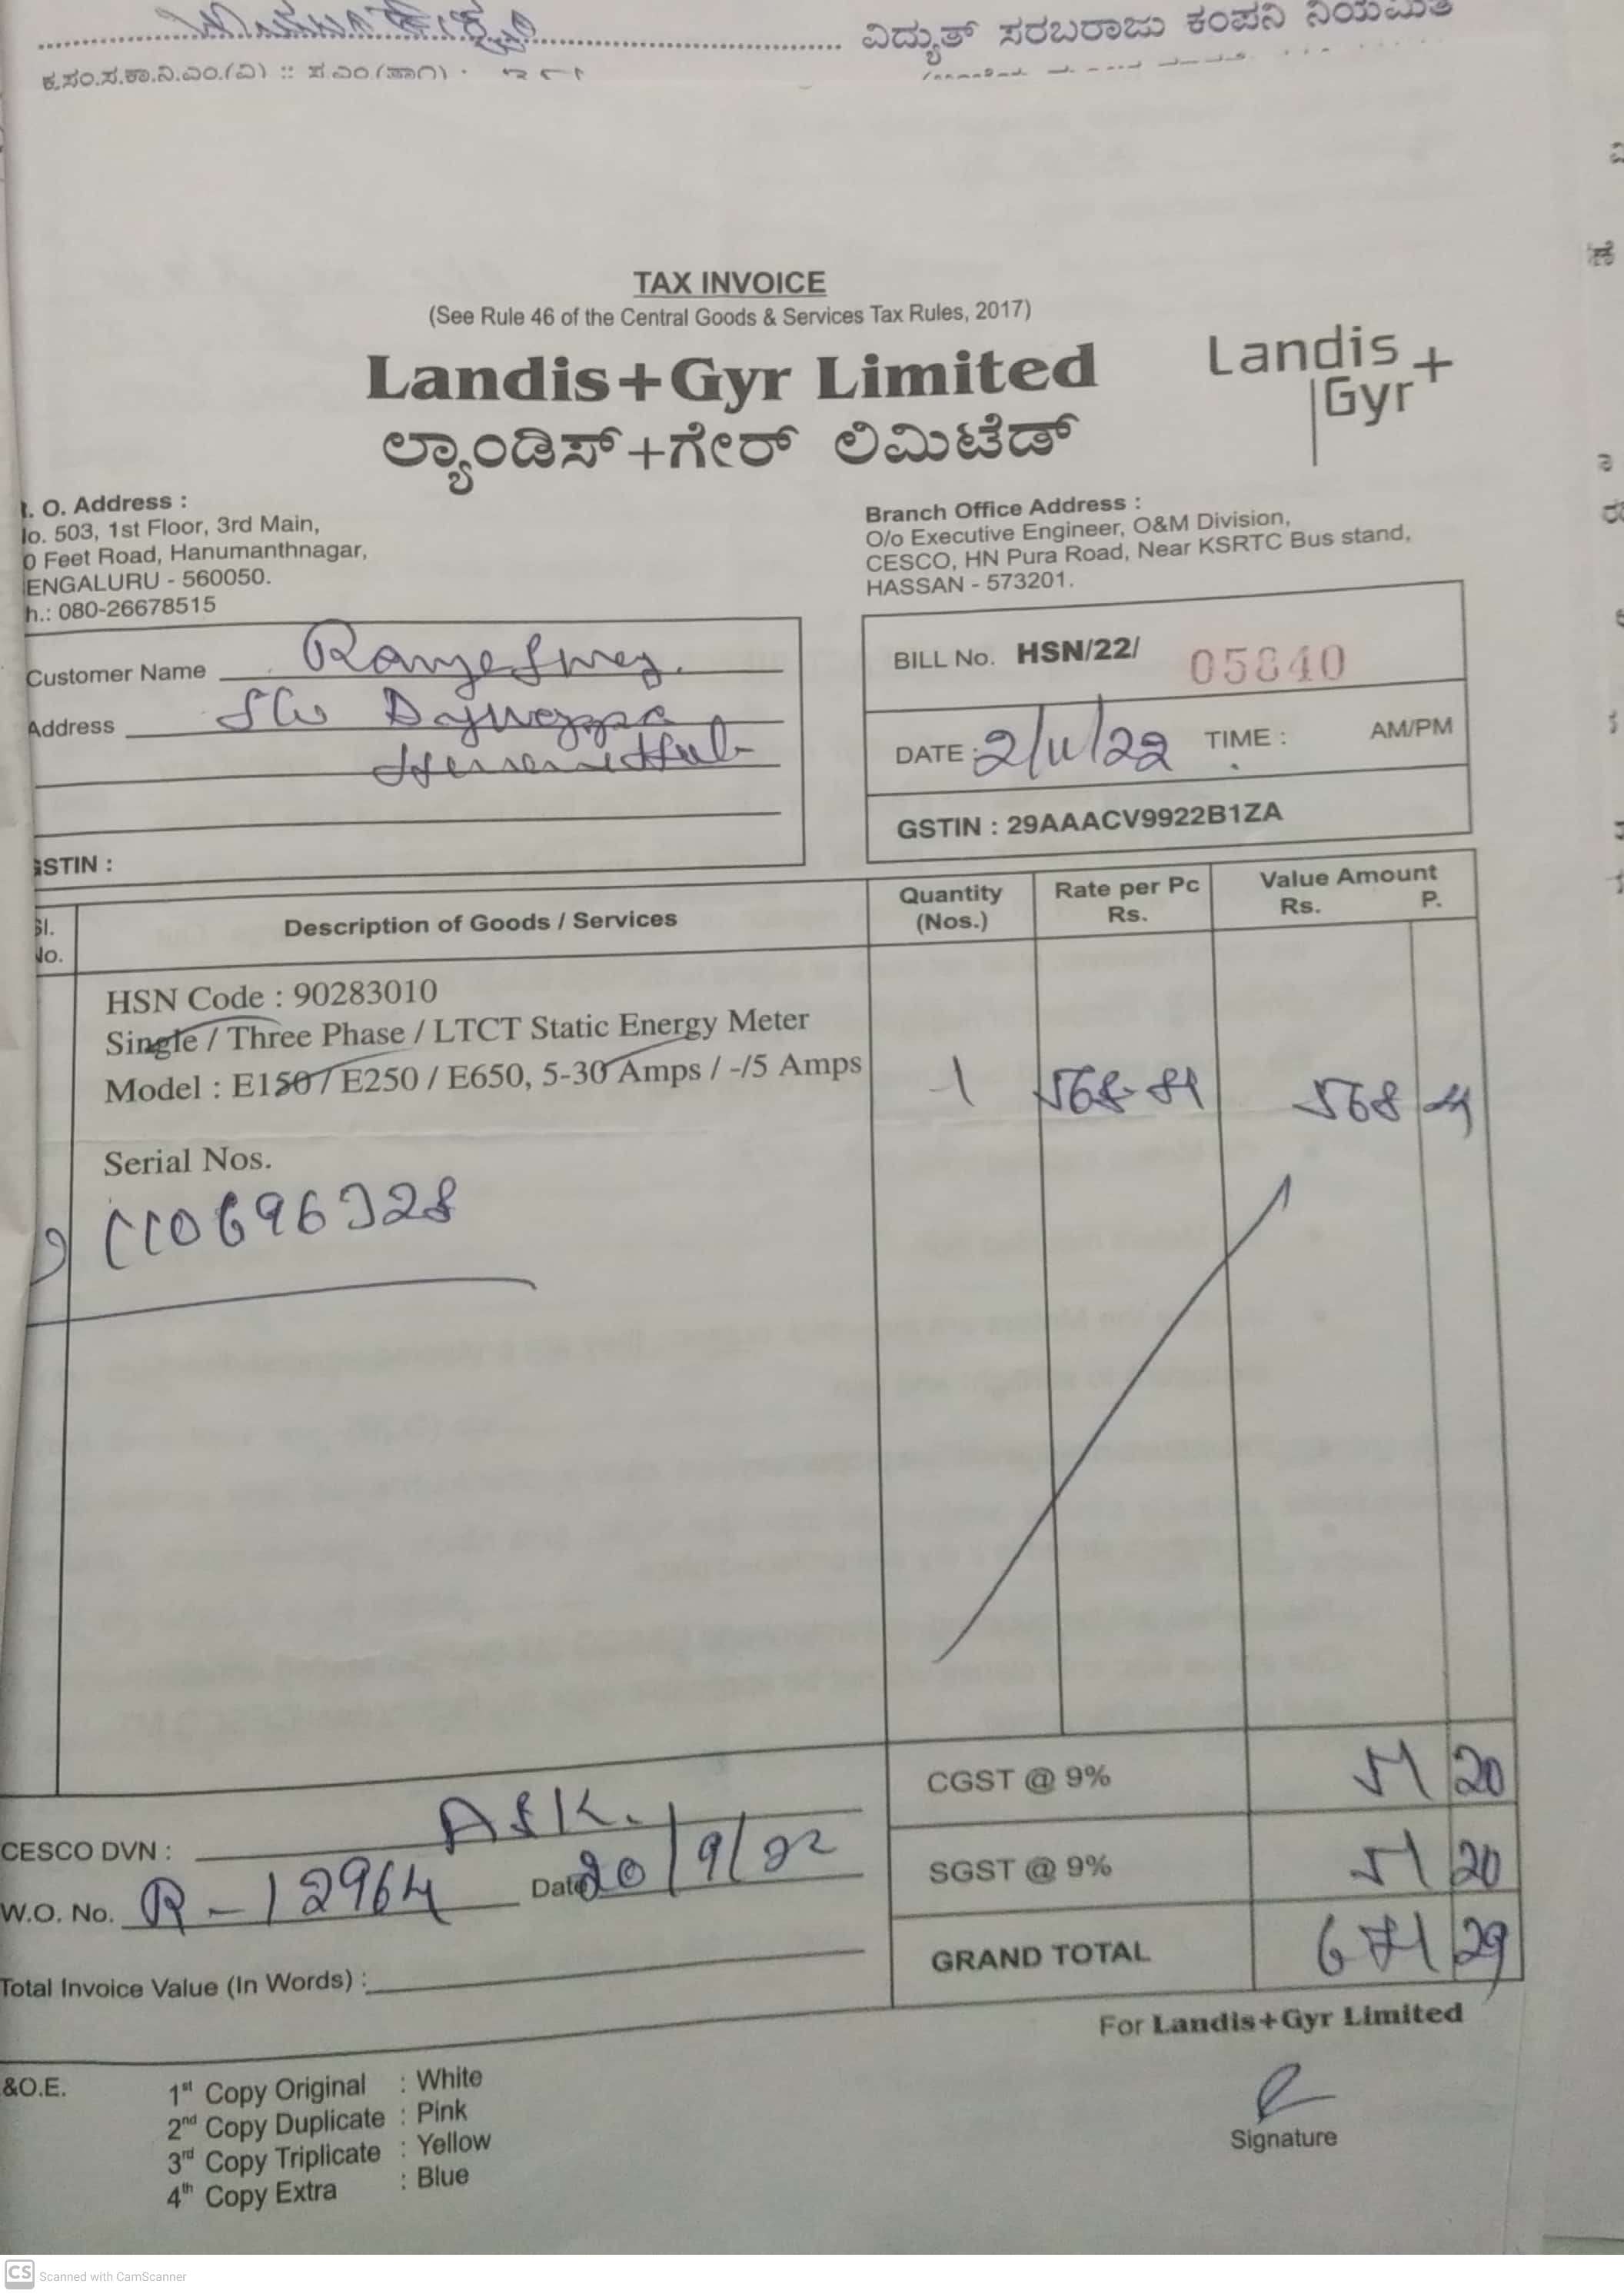 ವಿದ್ಯುತ್ ಸರಬರಾಜು ಕಂಪನಿ ನಿಯಮಿತ
ಕ.ಸಂ.ಸ.ಕಾ.ನಿ.ಎಂ.(ವಿ) ::
TAX INVOICE
(See Rule 46 of the Central Goods & Services Tax Rules, 2017)
Landis+Gyr Limited
Landis+
Gyr
ಲ್ಯಾಂಡಿಸ್+ಗೇರ್ ಲಿಮಿಟೆಡ್
. O. Address :
o. 503, 1st Floor, 3rd Main,
0 Feet Road, Hanumanthnagar,
ENGALURU - 560050.
h.: 080-26678515
Branch Office Address :
O/o Executive Engineer, O&M Division,
CESCO, HN Pura Road, Near KSRTC Bus stand,
HASSAN - 573201.
Customer Name
Address
GSTIN :
BILL No. HSN/22/ 05840
DATE : 2/11/22 TIME : AM/PM
GSTIN : 29AAACV9922B1ZA
Sl. No. Description of Goods / Services Quantity (Nos.) Rate per Pc Rs. Value Amount Rs. P.
HSN Code : 90283010
Single / Three Phase / LTCT Static Energy Meter
Model : E150 / E250 / E650, 5-30 Amps / -/5 Amps 1 568-89 568 89
Serial Nos.
CGST @ 9% 51 20
CESCO DVN : ASK.
SGST @ 9% 51 20
W.O. No. R-12964 Date 20/9/22
GRAND TOTAL 671 29
Total Invoice Value (In Words) :
For Landis+Gyr Limited
&O.E.
1st Copy Original : White
2nd Copy Duplicate : Pink
3rd Copy Triplicate : Yellow
4th Copy Extra : Blue
Signature
CS Scanned with CamScanner